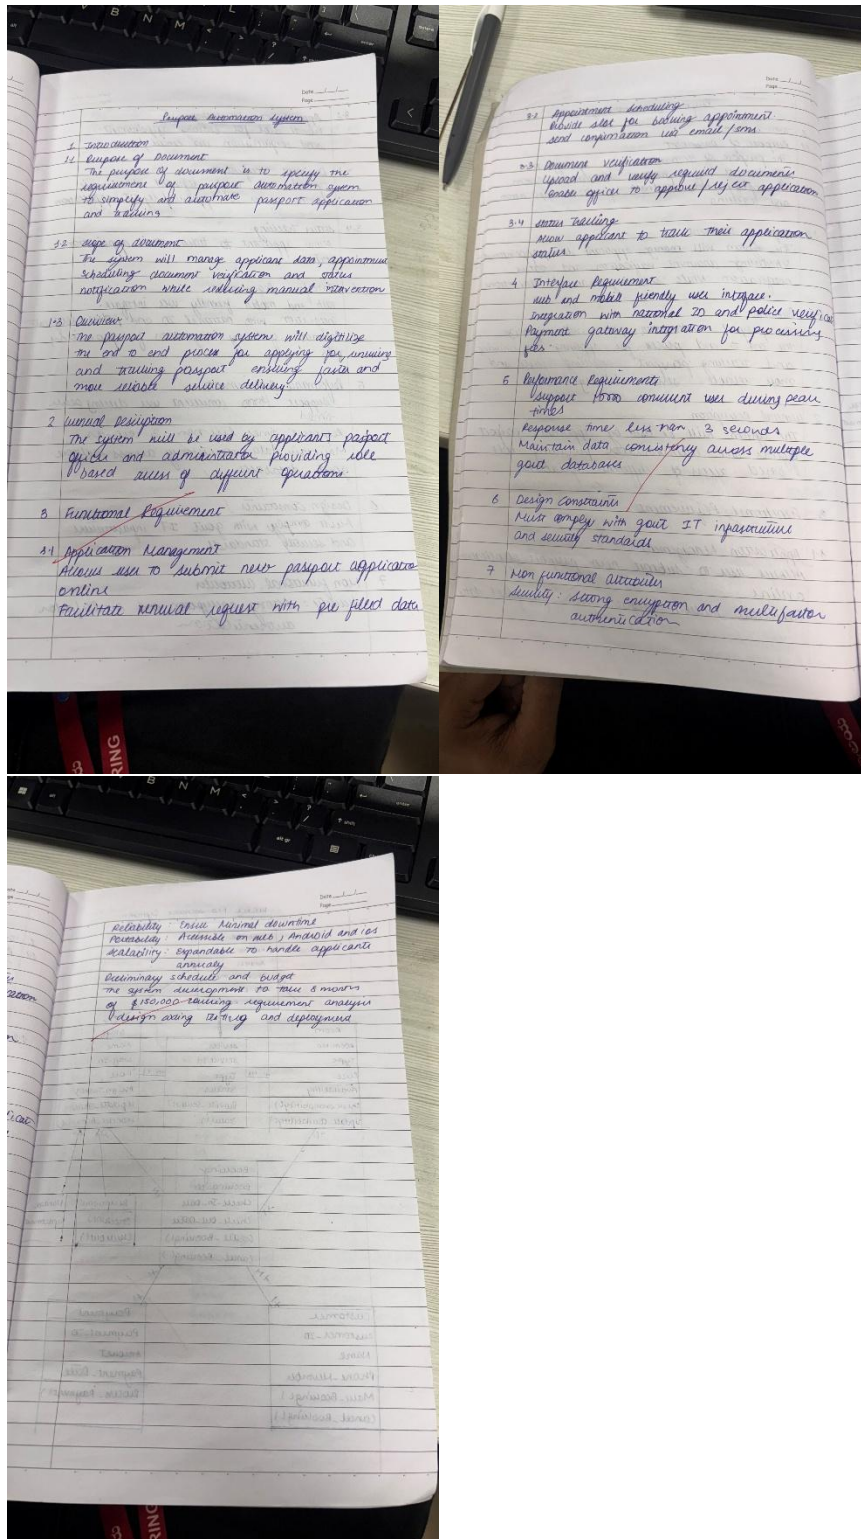 Date
Page
Passport Automation System
1 Introduction
1.1 Purpose of Document
The purpose of document is to specify the
requirement of passport automation system
to simplify and automate passport application
and tracking.
1.2 scope of document
The system will manage applicant data, appointment
scheduling document verification and status
notification while reducing manual intervention
1.3 Overview
The passport automation system will digitilize
the end to end process for applying for, renewing
and tracking passport ensuring faster and
more reliable service delivery
2 General Description
The system will be used by applicants passport
officer and administrator providing role
based access of different operations
3 Functional Requirement
3.1 Application Management
Allows user to submit new passport application
online
Facilitate renewal request with pre filled data
Date
Page
3.2 Appointment Scheduling
Provide slot for booking appointment
send confirmation via email/sms
3.3 Document Verification
Upload and verify required documents
enables officer to approve/reject application
3.4 Status Tracking
Allow applicant to track their application
status.
4 Interface Requirement
web and mobile friendly user interface.
Integration with national ID and police verificat
Payment gateway integration for processing
fees.
5 Performance Requirements
Support concurrent user during peak
times
Response time less than 3 seconds
Maintain data consistency across multiple
govt databases
6 Design Constraints
Must comply with govt IT infrastructure
and security standards
7 Non functional attributes
Security: strong encryption and multifactor
authentication
Date
Page
Reliability: Ensure Minimal downtime
Portability: Accessible on web, Android and ios
Scalability: Expandable to handle applicants
annualy
Preliminary schedule and budget
The system development to take 8 months
of $150,000 requirement analysis
design testing and deployment